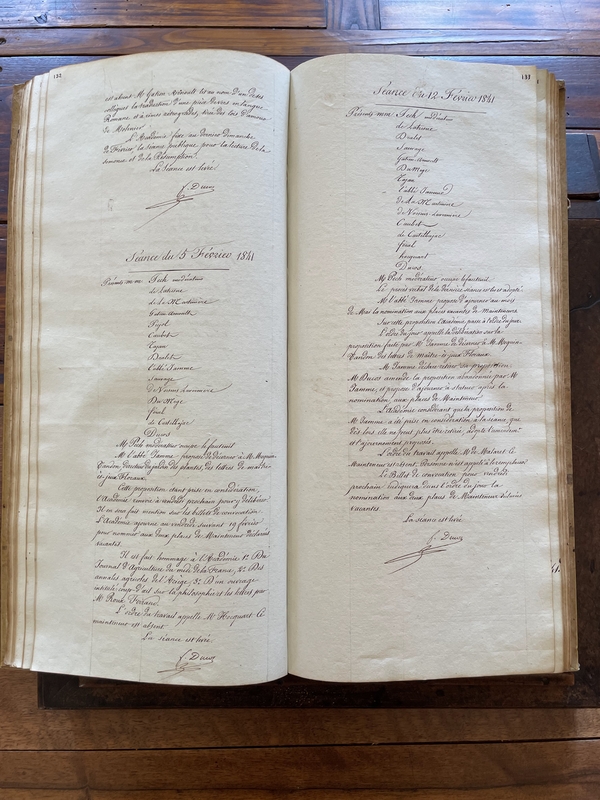 132
est absent. Mr Gatien Arnoult lit au nom d'un de ses
collègues la traduction d'une pièce de vers en langue
Romane et à rimes
de Molinier.
L'Académie fixe au dernier dimanche
de Février la séance publique pour la lecture de la
semonce et de la
La séance est levée
f. Ducos
Séance du 5 Février 1841
Présents m.m. Pech modérateur
de Latresne
de la Martinière
Gatien Arnoult
Pujol
Caubet
Cayan
Dralet
l'abbé Jamme
Sauvage
de Voisins Lavernière
Du Mège
féral
de Castelbajac
Ducos
Mr Pech modérateur occupe le fauteuil
Mr l'abbé Jamme propose de décerner à M. Moquin-
Tandon directeur du jardin des plantes, des lettres de maître-
ès-jeux floraux.
Cette proposition étant prise en considération,
l'Académie renvoie à vendredi prochain pour y délibérer.
Il en sera fait mention sur les billets de convocation.
L'Académie ajourne au vendredi suivant 19 février
pour nommer aux deux places de Mainteneur déclarées
vacantes.
Il est fait hommage à l'Académie 1° Du
Journal d'Agriculture du midi de la France, 2° Des
annales agricoles de l'Ariège, 3° D'un ouvrage
intitulé: coup d'œil sur la philosophie et les lettres par
Mr
L'ordre du travail appelle Mr Hocquart. Ce
mainteneur est absent.
La séance est levée
f. Ducos
133
Séance du 12 Février 1841
Présents m.m. Pech modérateur
de Latresne
Dralet
Sauvage
Gatien Arnoult
Du Mège
Cayan
l'abbé Jamme
de la Martinière
de Voisins Lavernière
Caubet
de Castelbajac
féral
hocquart
Ducos.
Mr Pech modérateur occupe le fauteuil.
Le procès verbal de la dernière séance est lu et adopté.
Mr l'abbé Jamme propose d'ajourner au mois
de Mai la nomination aux places vacantes de Mainteneurs.
Sur cette proposition l'Académie passe à l'ordre du jour.
L'ordre du jour appelle la délibération sur la
proposition faite par Mr Jamme de décerner à M. Moquin-
Tandon des lettres de maître-ès-jeux Floraux.
Mr Jamme déclare retirer sa proposition.
Mr Ducos amende la proposition abandonnée par Mr
Jamme, et propose d'ajourner à statuer après la
nomination aux places de Mainteneur.
L'Académie considérant que la proposition de
Mr Jamme a été prise en considération à la séance, que
dès lors elle ne peut plus être retirée, adopte l'amendement
et l'ajournement proposés.
L'ordre du travail appelle Mr de Malaret. Ce
Mainteneur est absent. Personne n'est appelé à le remplacer.
Le Billet de convocation pour vendredi
prochain indiquera dans l'ordre du jour la
nomination aux deux places de Mainteneur déclarées
vacantes.
La séance est levée
f. Ducos